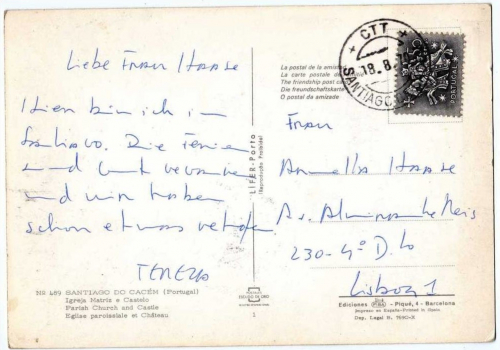 Liebe Frau Haase
Hier bin ich in
Santiago. Die Ferien
sind und
und wir haben
schon etwas
TEREZA
Nº 469 SANTIAGO DO CACÉM (Portugal)
Igreja Matriz e Castelo
Parish Church and Castle
Eglise paroissiale et Château
LIFER-Porto
(Reprodução Proibida)
ESCUDO DE ORO
1
La postal de la amista
La carte postale de
The friendship post ca
Die freundschaftskarte
O postal da amizade
CTT
18.8.
SANTIAGO
PORTUGAL
Frau
Annella Haase
Av. Almirante Reis
230-4º D.to
Lisboa 1
Ediciones - Piqué, 4 - Barcelona
Impreso en España-Printed in Spain
Dep. Legal B.